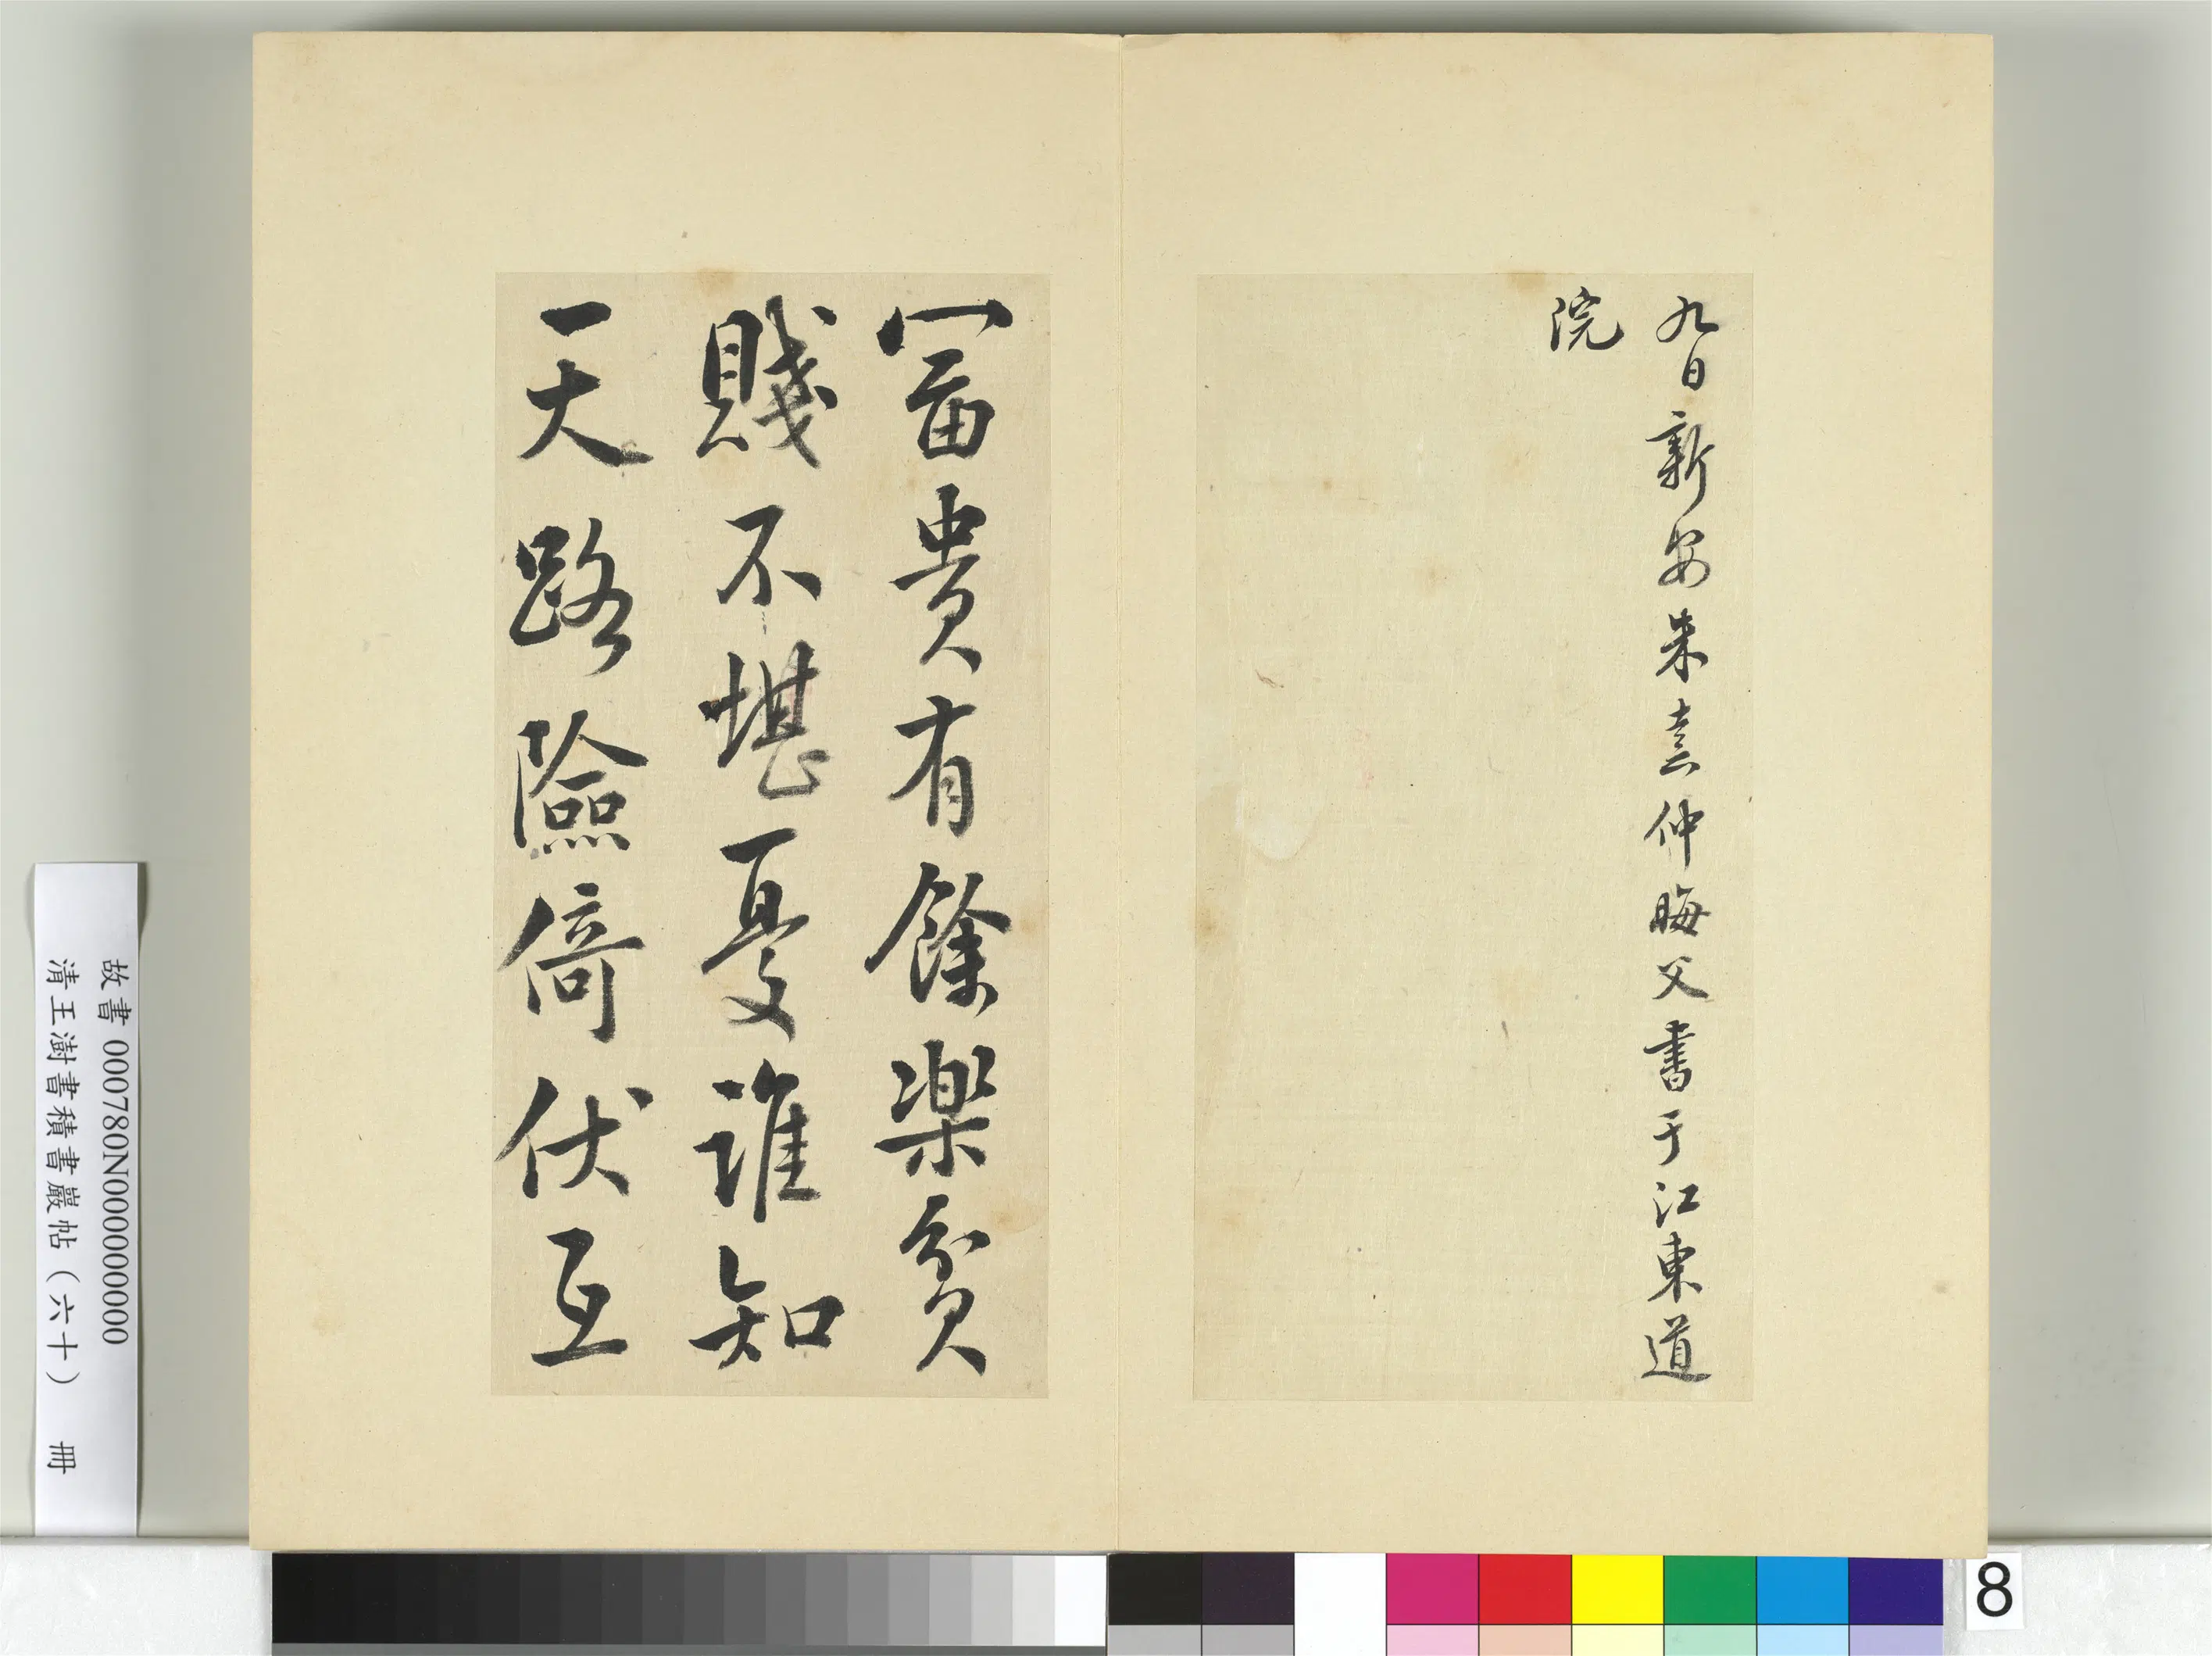 九日新安朱熹仲晦父書于江東道
院
冨貴有餘楽貧
賤不堪憂誰知
天路險倚伏互
故書 000780N000000000
清王澍書積書巖帖（六十） 冊
8